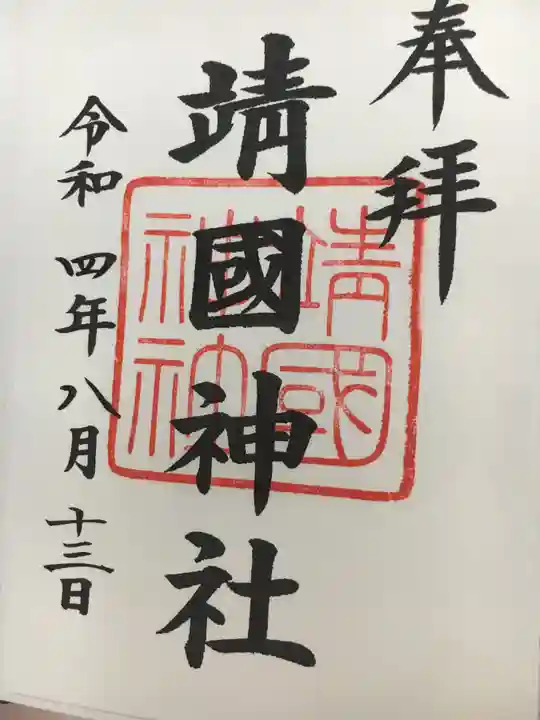 奉拝
靖國神社
令和 四年 八月 十三日
靖國
神社